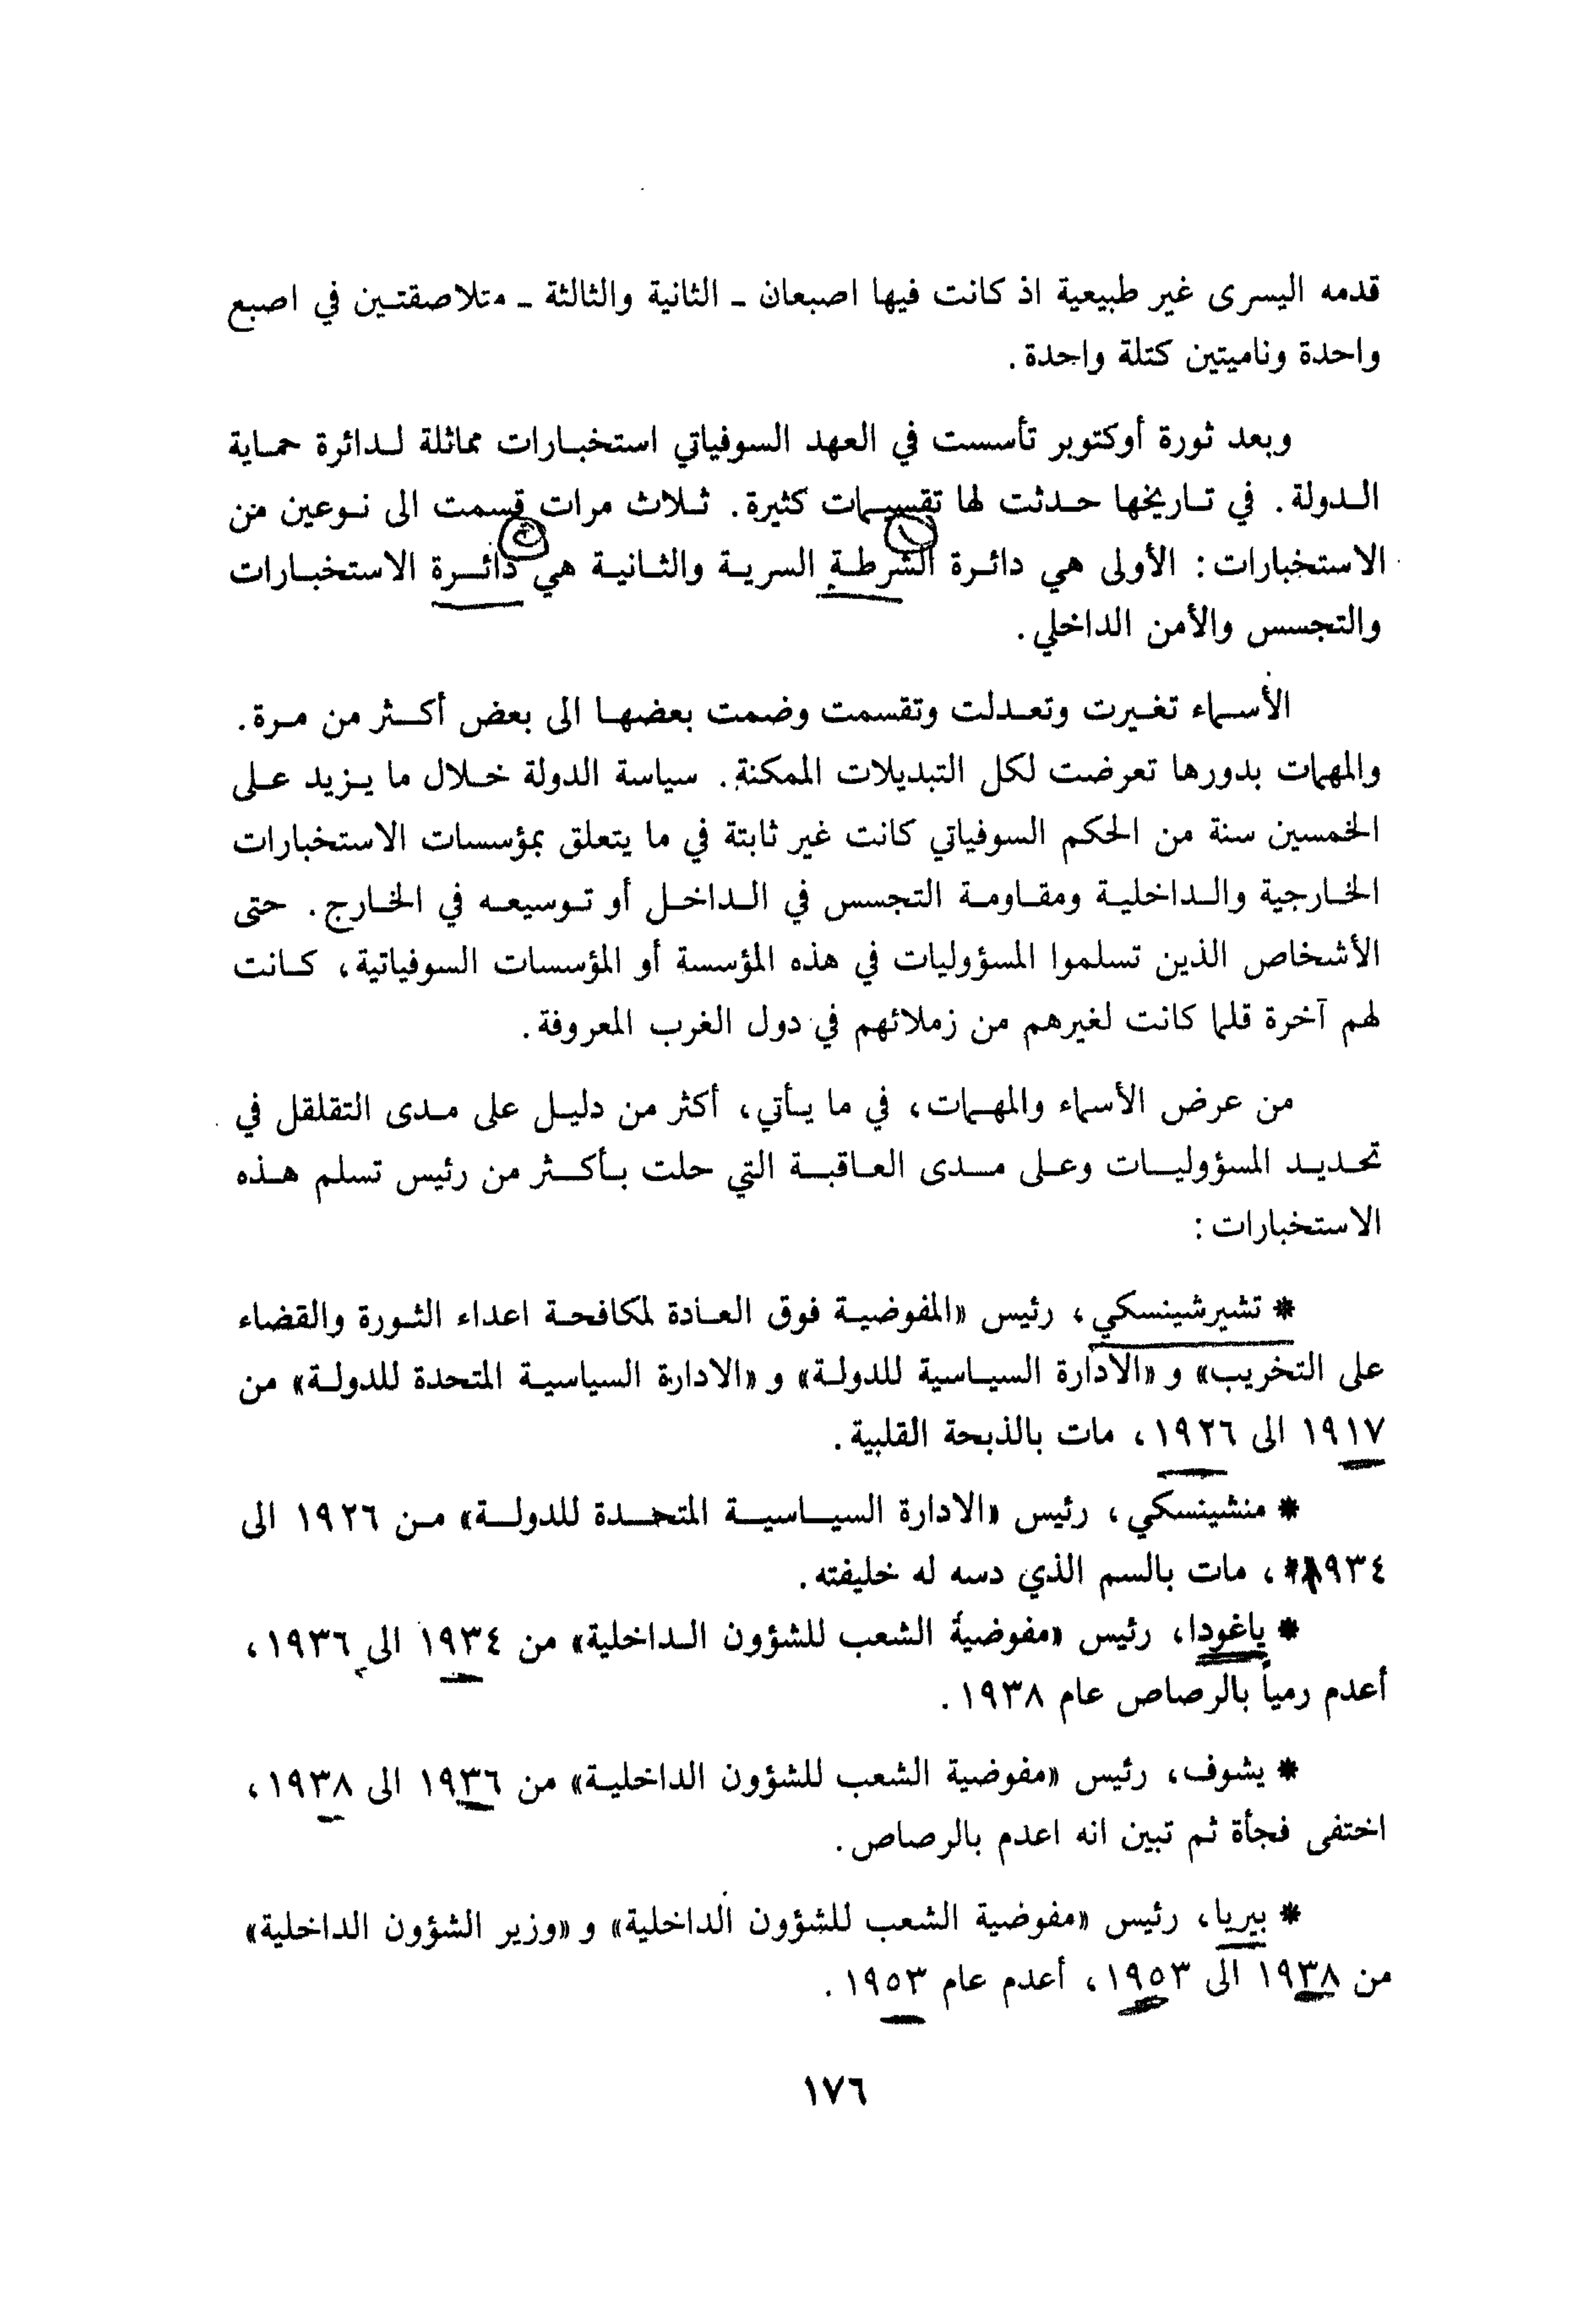 قدمه اليسرى غير طبيعية اذ كانت فيها اصبعان ـ الثانية والثالثة ـ متلاصقتين في اصبع
واحدة وناميتين كتلة واحدة.
وبعد ثورة أوكتوبر تأسست في العهد السوفياتي استخبارات مماثلة لدائرة حماية
الدولة. في تاريخها حدثت لها تقسيمات كثيرة. ثلاث مرات قسمت الى نوعين من
الاستخبارات: الأولى هي دائرة الشرطة السرية والثانية هي دائرة الاستخبارات
والتجسس والأمن الداخلي.
الأسماء تغيرت وتعدلت وتقسمت وضمت بعضها الى بعض أكثر من مرة.
والمهمات بدورها تعرضت لكل التبديلات الممكنة. سياسة الدولة خلال ما يزيد على
الخمسين سنة من الحكم السوفياتي كانت غير ثابتة في ما يتعلق بمؤسسات الاستخبارات
الخارجية والداخلية ومقاومة التجسس في الداخل أو توسيعه في الخارج. حتى
الأشخاص الذين تسلموا المسؤوليات في هذه المؤسسة أو المؤسسات السوفياتية، كانت
لهم آخرة قلما كانت لغيرهم من زملائهم في دول الغرب المعروفة.
من عرض الأسماء والمهمات، في ما يأتي، أكثر من دليل على مدى التقلقل في
تحديد المسؤوليات وعلى مدى العاقبة التي حلت بأكثر من رئيس تسلم هذه
الاستخبارات:
* تشيرشينسكي، رئيس «المفوضية فوق العادة لمكافحة اعداء الثورة والقضاء
على التخريب» و «الادارة السياسية للدولة» و «الادارة السياسية المتحدة للدولة» من
١٩١٧ الى ١٩٢٦، مات بالذبحة القلبية.
* منشينسكي، رئيس «الادارة السياسية المتحدة للدولة» من ١٩٢٦ الى
١٩٣٤*، مات بالسم الذي دسه له خليفته.
* ياغودا، رئيس «مفوضية الشعب للشؤون الداخلية» من ١٩٣٤ الى ١٩٣٦،
أعدم رمياً بالرصاص عام ١٩٣٨.
* يشوف، رئيس «مفوضية الشعب للشؤون الداخلية» من ١٩٣٦ الى ١٩٣٨،
اختفى فجأة ثم تبين انه اعدم بالرصاص.
* بيريا، رئيس «مفوضية الشعب للشؤون الداخلية» و «وزير الشؤون الداخلية»
من ١٩٣٨ الى ١٩٥٣، أعدم عام ١٩٥٣.
١٧٦